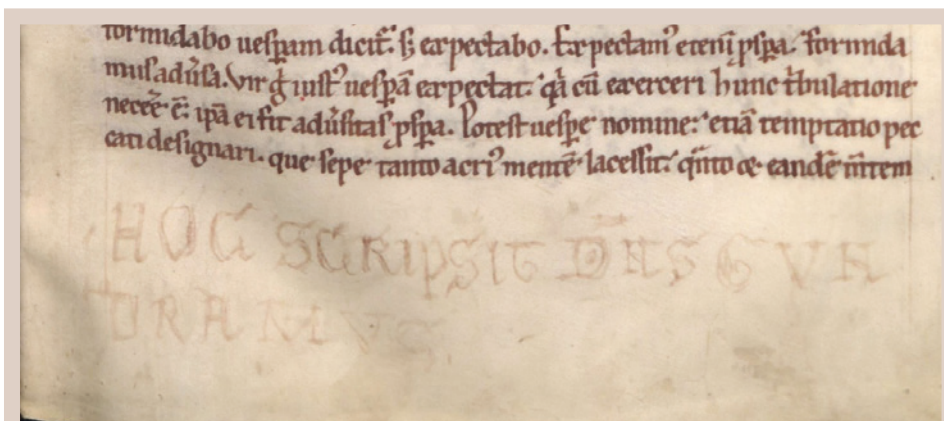 formidabo uesꝑam dicit᷑. sꝫ expectabo. Expectam⁹ etenī ꝓsꝑa. formida
mus adu̓sa. Vir g̊ iust⁹ uesꝑā expectat. q̓a cū exerceri hunc t̓bulatione
necēē ē. ipā ei fit adu̓sitas ꝓsꝑa. Potest uesꝑe nomine. etiā temptatio pec
cati designari. que sepe tanto acri⁹ mentē lacessit. q̄nto eandē m̄tem
HOC SCRIPSIT D̄NS GVN
TRAMVS